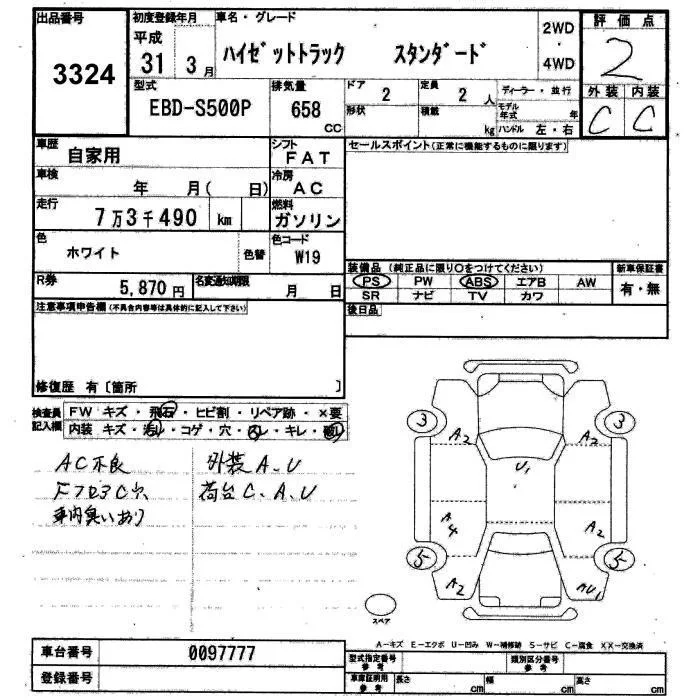 出品番号 3324
初度登録年月 平成 31年 3月
車名・グレード ハイゼットトラック スタンダード
2WD・4WD
評価点 2
外装 C 内装 C
型式 EBD-S500P
排気量 658 CC
ドア 2
形状
定員 2 人
積載 kg
ディーラー・並行
モデル年式 年
ハンドル 左・右
車歴 自家用
シフト FAT
セールスポイント(正常に機能するものに限ります)
車検 年 月( 日)
冷房 AC
走行 7万3千490 km
燃料 ガソリン
色 ホワイト
色替
色コード W19
R券 5,870円
名変通知期限 月 日
装備品(純正品に限り○をつけてください)
PS PW ABS エアB AW
SR ナビ TV カワ
新車保証書 有・無
後日品
注意事項申告欄(不具合内容等は具体的に記入して下さい)
修復歴 有〔箇所 〕
検査員記入欄
FW キズ・飛石・ヒビ割・リペア跡・×要
内装 キズ・汚レ・コゲ・穴・スレ・キレ・破レ
AC不良 外装A、U
Fフロアc穴 荷台C、A、U
車内臭いあり
3 3
A2 A2
U1
A4 A2
5 5
A2 AU1
スペア
A-キズ E-エクボ U-凹み W-補修跡 S-サビ C-腐食 XX-交換済
車台番号 0097777
登録番号
型式指定番号 参考
類別区分番号 参考
車庫証明用 参考 長さ cm 幅 cm 高さ cm